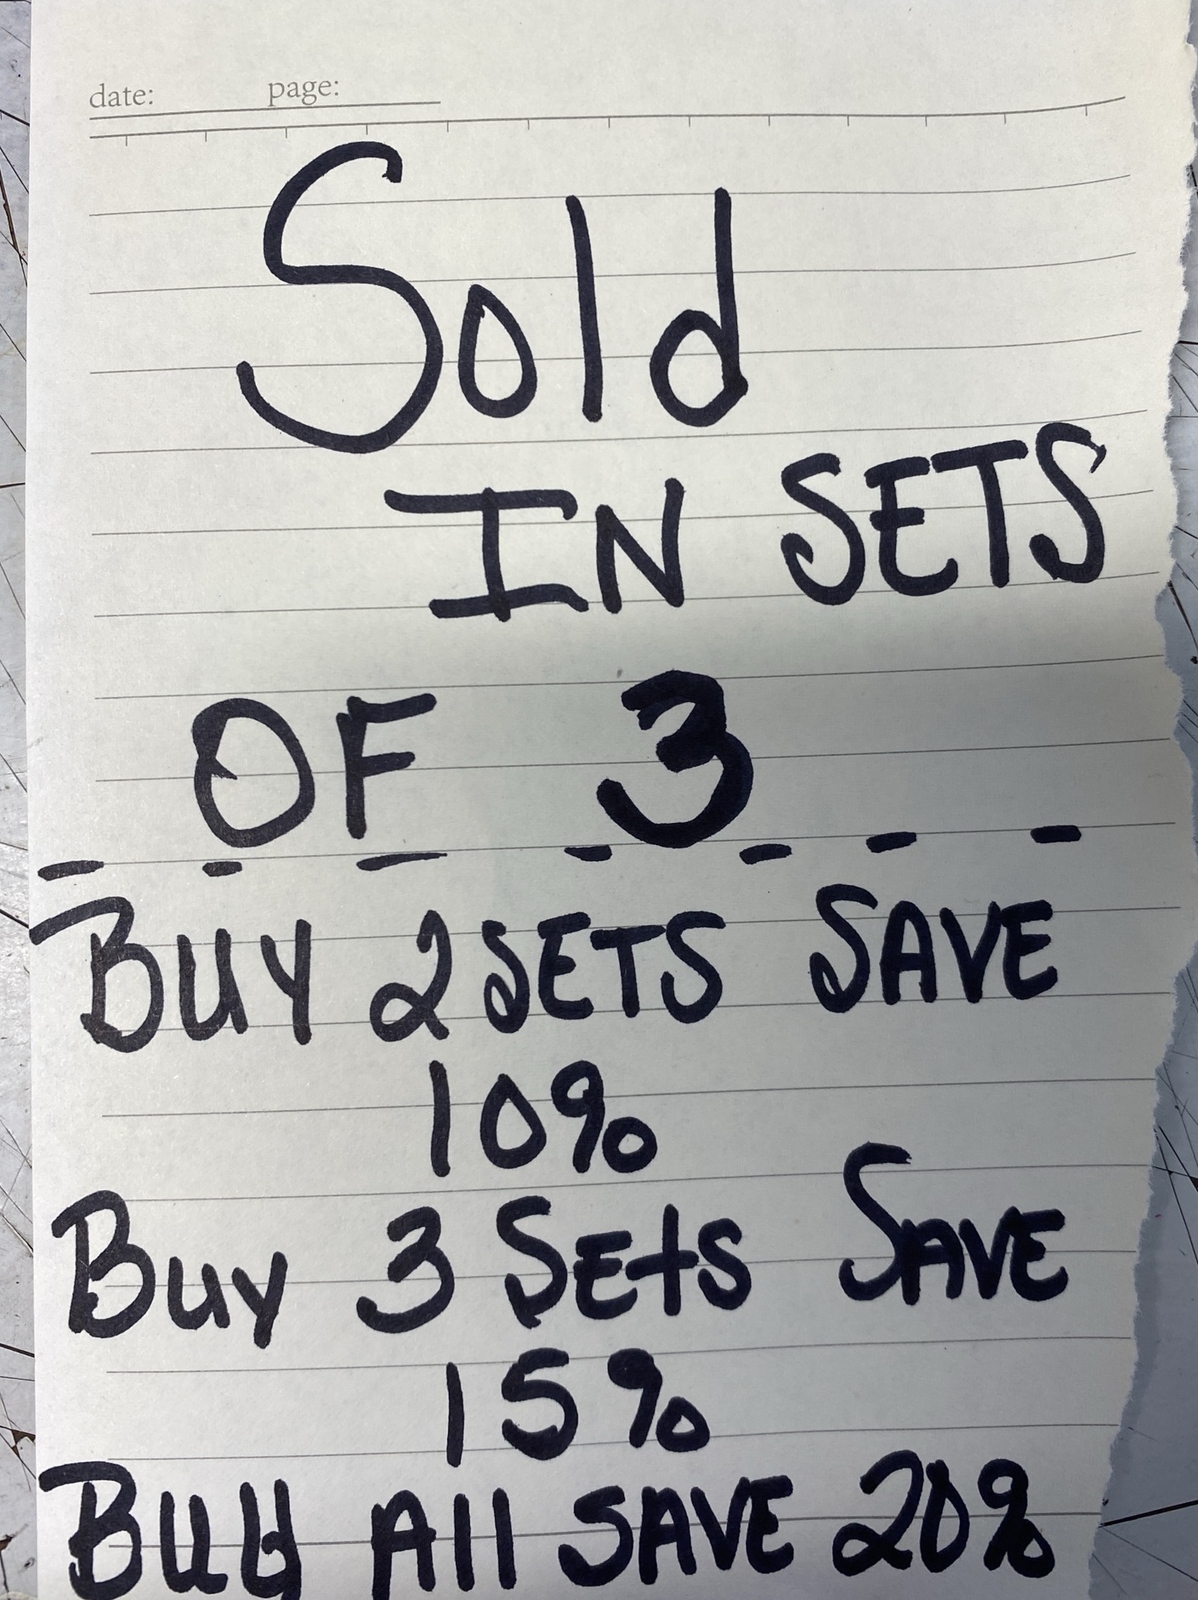 date: page:
Sold
IN SETS
OF 3
- - - - - - -
BUY 2 SETS SAVE
10%
Buy 3 SEtS SAVE
15%
BUY All SAVE 20%